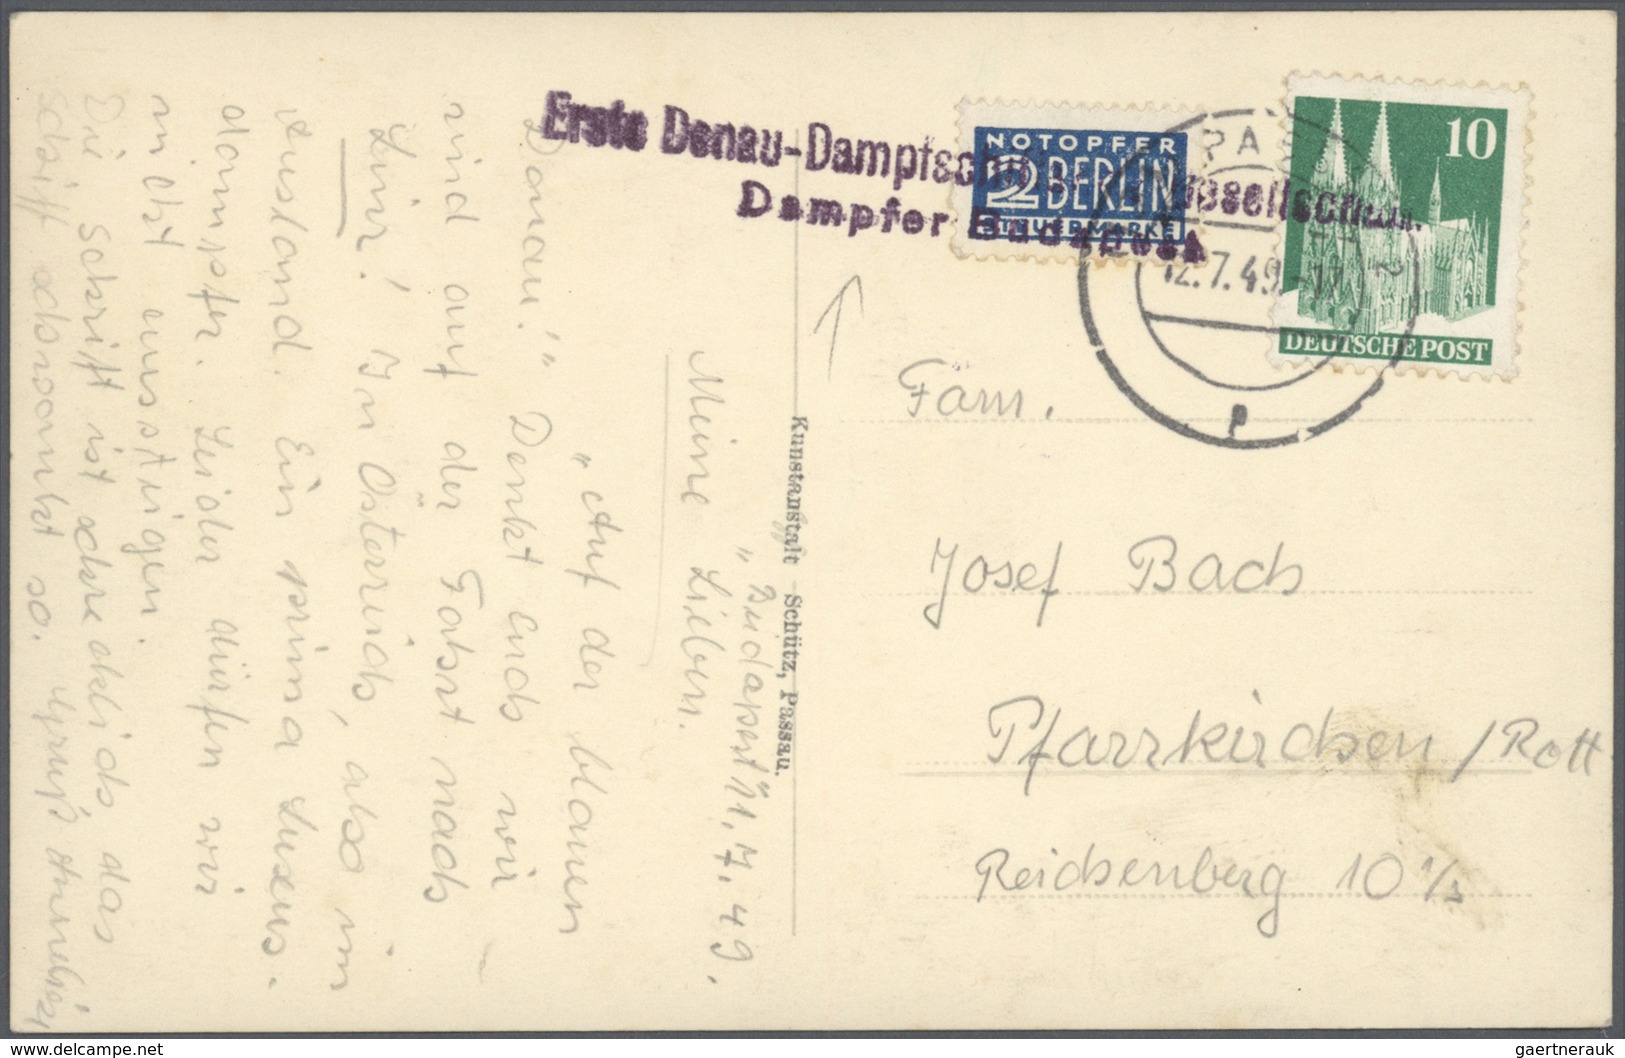 Erste Donau-Dampfschi Gesellschaft.
Dampfer Budapest
NOTOPFER
2 BERLIN
STEUERMARKE
10
DEUTSCHE POST
PA
12.7.49.-17
2
P
Kunstanstalt Schütz, Passau.
„Budapest" 11.7.49.
Meine Lieben.
„Auf der blauen
Donau!" Denkt Euch wir
sind auf der Fahrt nach
Linz! In Österreich, also im
Ausland. Ein prima Luxus-
dampfer. Leider dürfen wir
nicht aussteigen.
Die Schrift ist schrecklich, das
Schiff schwankt so. Gruß
Fam.
Josef Bach
Pfarrkirchen / Rott
Reichenberg 10 1/2
delcampe.net
gaertnerauk